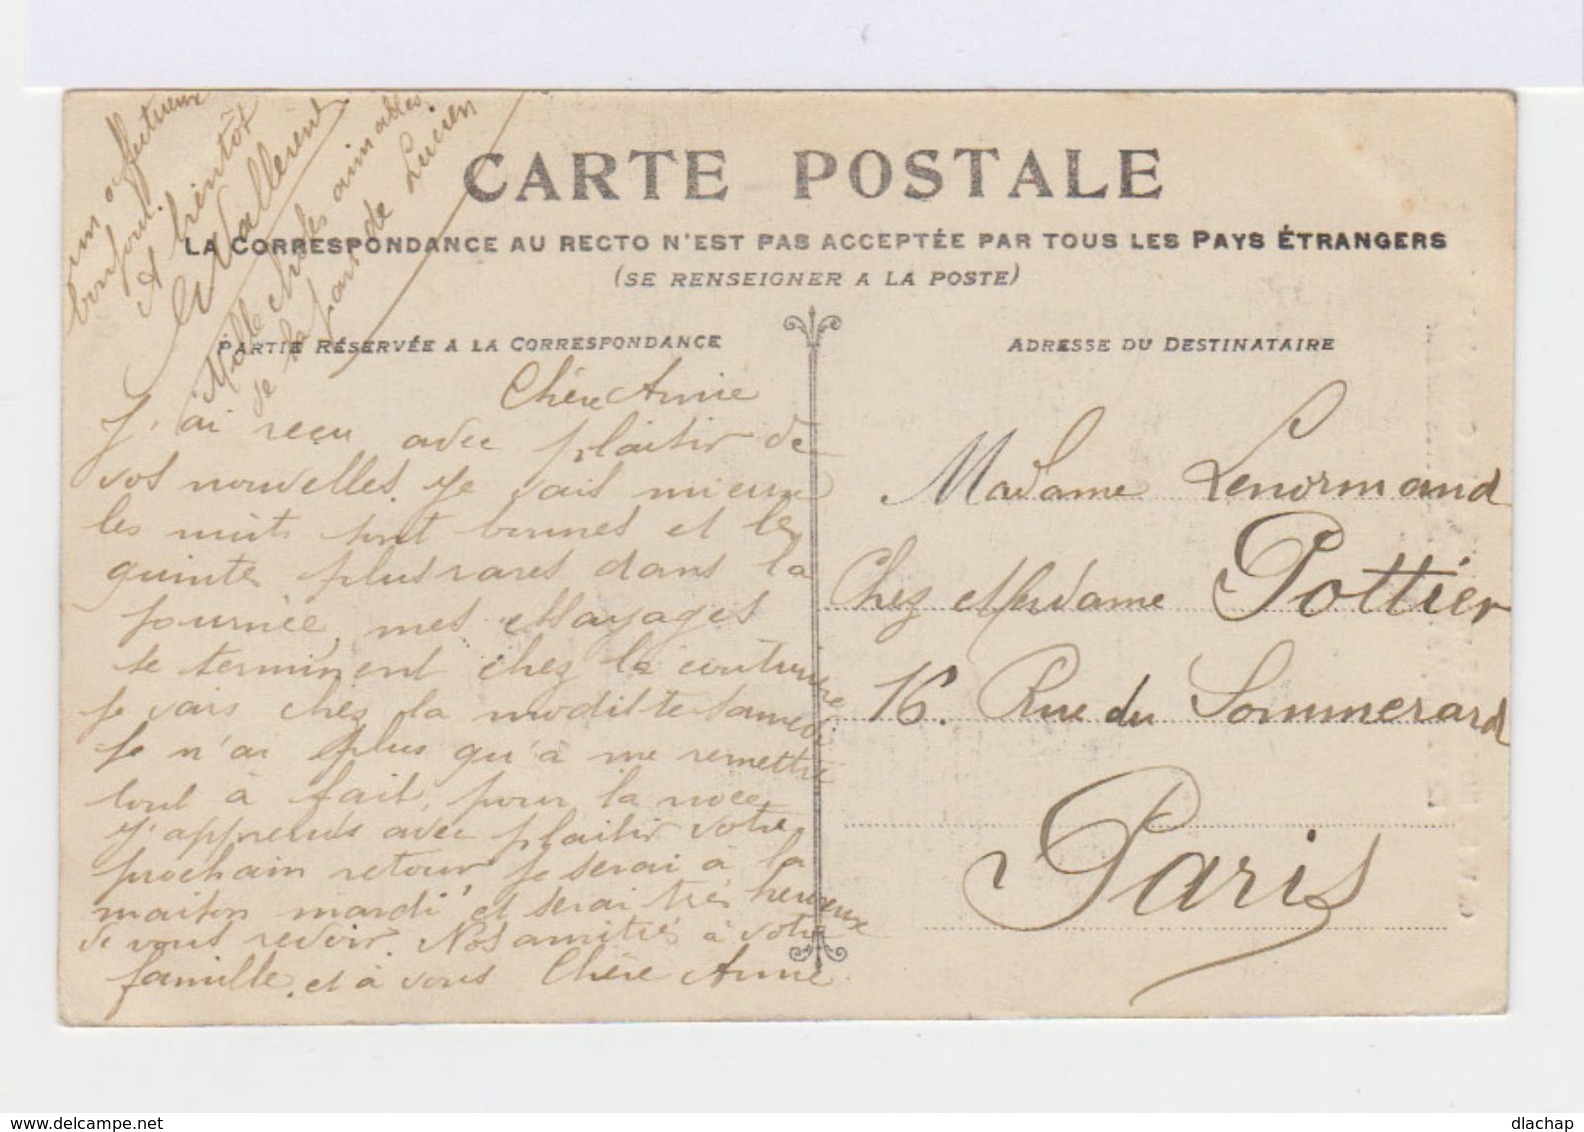 CARTE POSTALE
LA CORRESPONDANCE AU RECTO N'EST PAS ACCEPTÉE PAR TOUS LES PAYS ÉTRANGERS
(SE RENSEIGNER A LA POSTE)
PARTIE RÉSERVÉE A LA CORRESPONDANCE
Chère Annie
J'ai reçu avec plaisir de
vos nouvelles. Je vais mieux
les nuits sont bonnes et les
quintes plus rares dans la
journée, mes essayages
se terminent chez la couturière
je vais chez la modiste samedi
Je n'ai plus qu'à me remettre
tout à fait, pour la noce,
J'apprends avec plaisir votre
prochain retour je serai à la
maison mardi et serai très heureux
de vous revoir. Nos amitiés à votre
famille, et à vous Chère Annie
affectueux
bonjour.
A bientôt
Mille choses aimables
de la part de Lucien
ADRESSE DU DESTINATAIRE
Madame Lenormand
Chez Madame Pottier
16. Rue du Sommerard
Paris
delcampe.net
dlachap